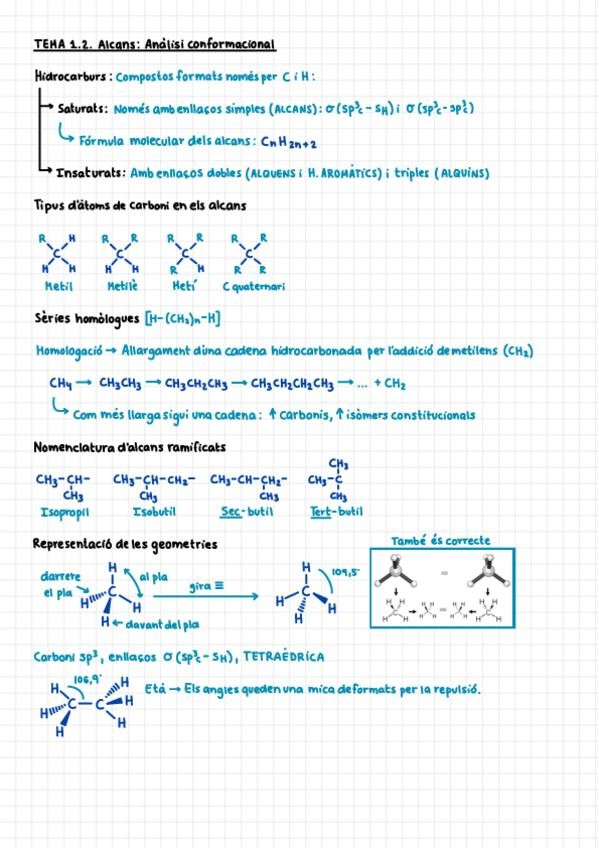 TEMA 1.2. Alcans: Anàlisi conformacional
Hidrocarburs: Compostos formats només per C i H:
Saturats: Només amb enllaços simples (ALCANS): σ (sp³c - sH) i σ (sp³c - sp³c)
Fórmula molecular dels alcans: CnH2n+2
Insaturats: Amb enllaços dobles (ALQUENS i H. AROMÀTICS) i triples (ALQUINS)
Tipus d'àtoms de carboni en els alcans
R H R R R R R R
C C C C
H H H H R H R R
Metil Metilè Metí C quaternari
Sèries homòlogues [H-(CH₂)n-H]
Homologació → Allargament d'una cadena hidrocarbonada per l'addició de metilens (CH₂)
CH₄ → CH₃CH₃ → CH₃CH₂CH₃ → CH₃CH₂CH₂CH₃ → ... + CH₂
Com més llarga sigui una cadena: ↑ carbonis, ↑ isòmers constitucionals
Nomenclatura d'alcans ramificats
CH₃
CH₃-CH- CH₃-CH-CH₂- CH₃-CH-CH₂- CH₃-C
CH₃ CH₃ CH₃ CH₃
Isopropil Isobutil Sec-butil Tert-butil
Representació de les geometries
També és correcte
darrere el pla
H
al pla
H C H
H ← davant del pla
gira ≡
H
109,5°
H C H
H
=
H H H H H H H H
C C C C
H H H H H H H H
Carboni sp³, enllaços σ (sp³c - sH), TETRAÈDRICA
106,9°
H H
H C - C H
H H
Età → Els angles queden una mica deformats per la repulsió.